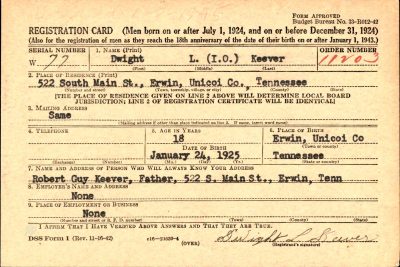 FORM APPROVED
Budget Bureau No. 33-R012-42
REGISTRATION CARD (Men born on or after July 1, 1924, and on or before December 31, 1924)
(Also for the registration of men as they reach the 18th anniversary of the date of their birth on or after January 1, 1943.)
SERIAL NUMBER 1. NAME (Print) ORDER NUMBER
W 77 Dwight L. (I.O.) Keever
(First) (Middle) (Last)
2. PLACE OF RESIDENCE (Print)
522 South Main St., Erwin, Unicoi Co., Tennessee
(Number and street) (Town, township, village, or city) (County) (State)
[THE PLACE OF RESIDENCE GIVEN ON LINE 2 ABOVE WILL DETERMINE LOCAL BOARD
JURISDICTION; LINE 2 OF REGISTRATION CERTIFICATE WILL BE IDENTICAL]
3. MAILING ADDRESS
Same
[Mailing address if other than place indicated on line 2. If same, insert word same]
4. TELEPHONE 5. AGE IN YEARS 6. PLACE OF BIRTH
18 Erwin, Unicoi Co
DATE OF BIRTH (Town or county)
January 24, 1925 Tennessee
(Exchange) (Number) (Mo.) (Day) (Yr.) (State or country)
7. NAME AND ADDRESS OF PERSON WHO WILL ALWAYS KNOW YOUR ADDRESS
Robert Guy Keever, Father, 522 S. Main St., Erwin, Tenn
8. EMPLOYER'S NAME AND ADDRESS
None
9. PLACE OF EMPLOYMENT OR BUSINESS
None
(Number and street or R. F. D. number) (Town) (County) (State)
I AFFIRM THAT I HAVE VERIFIED ABOVE ANSWERS AND THAT THEY ARE TRUE.
DSS Form 1 (Rev. 11-16-42)
(OVER)
Dwight L Keever
(Registrant's signature)